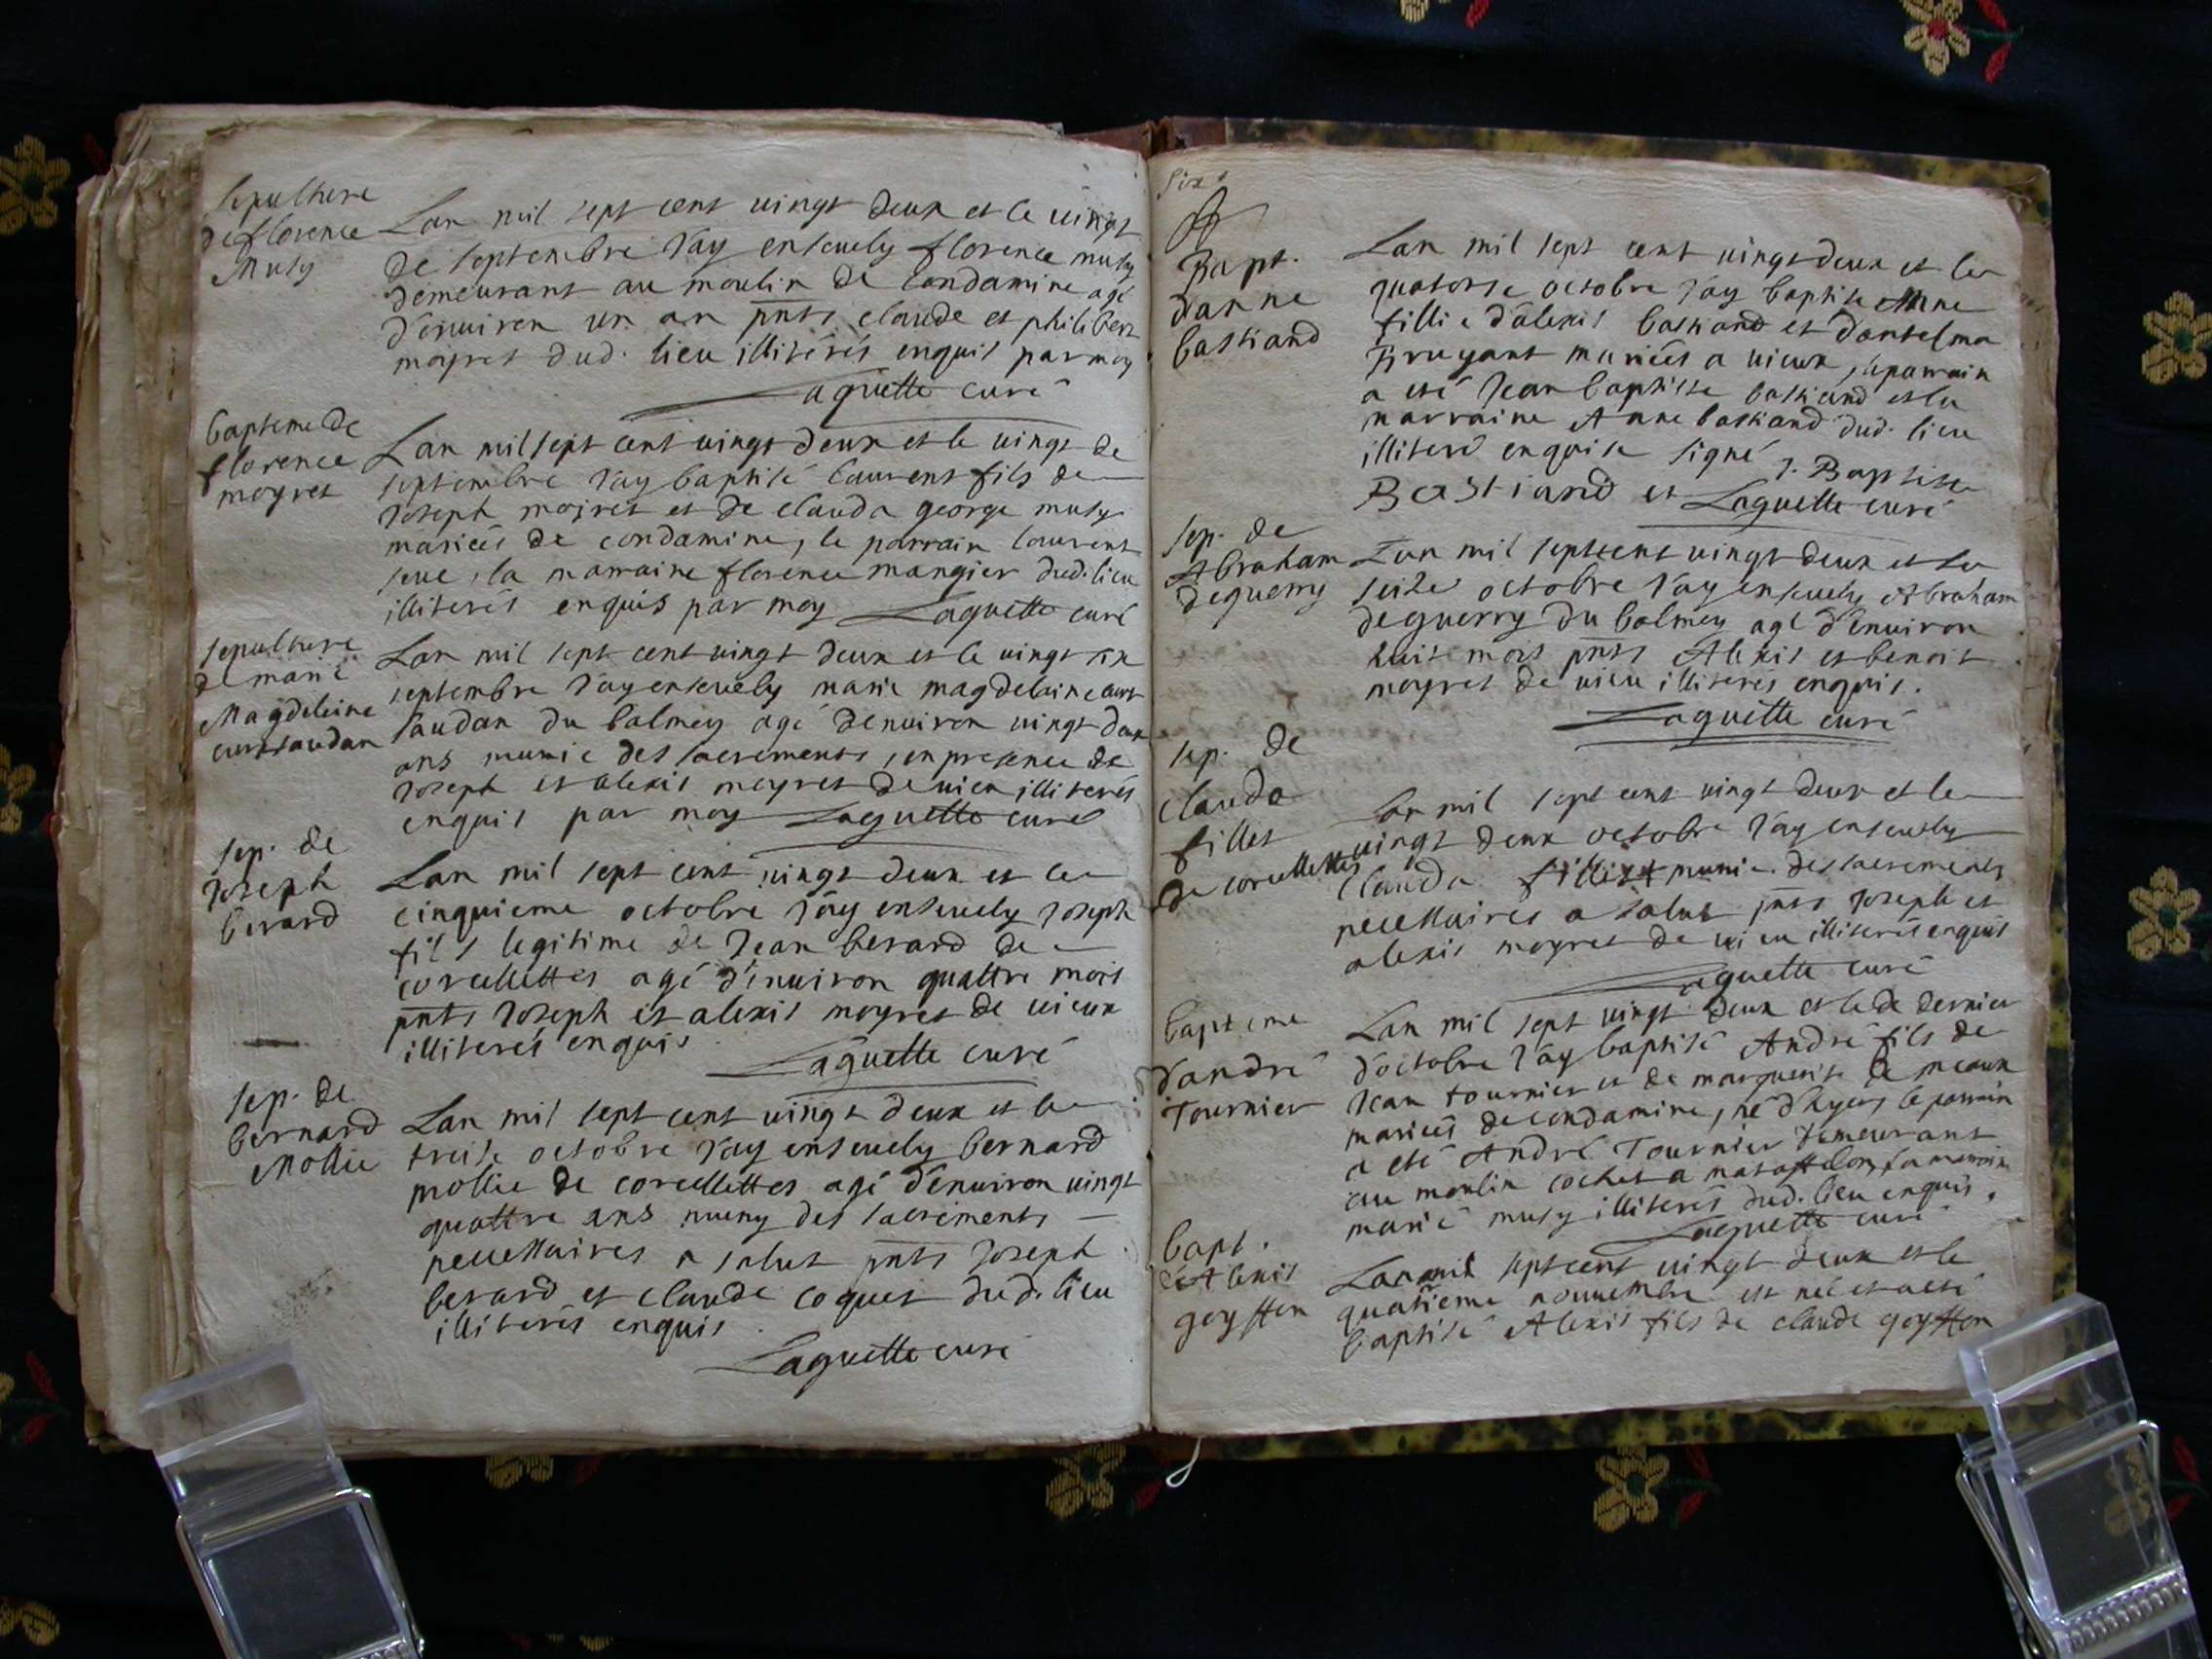 sepulture
de florence
Musy
Lan mil sept cent vingt deux et le vingt
de septembre J'ay ensevely florence musy
demeurant au moulin de Condamine agé
d'environ un an pnts claude et philibert
moyret dud. lieu illiterés enquis par moy
Laguette curé
bapteme de
florence
moyret
Lan mil sept cent vingt deux et le vingt de
septembre J'ay baptisé laurent fils de
Joseph moyret et de clauda george musy
mariées de condamine, le parrain laurent
seve, la marraine florence mangier dud. lieu
illiterés enquis par moy Laguette curé
sepulture
de marie
Magdeleine
curtsaudan
Lan mil sept cent vingt deux et le vingt six
septembre J'ay ensevely marie magdelaine curt
saudan du balmey agé denviron vingt deux
ans munie des sacrements, en presence de
Joseph et alexis moyret de vieu illiterés
enquis par moy Laguette curé
sep. de
Joseph
berard
Lan mil sept cent vingt deux et le
cinquieme octobre J'ay ensevely Joseph
fils legitime de Jean berard de
corcellettes agé d'environ quattre mois
pnts Joseph et alexis moyret de vieux
illiterés enquis
Laguette curé
sep. de
bernard
Mollie
Lan mil sept cent vingt deux et le
treise octobre J'ay ensevely bernard
mollie de corcellettes agé d'environ vingt
quattre ans muny des sacrements
necessaires a salut pnts Joseph
berard et claude coquet dud. lieu
illiterés enquis
Laguette curé
six
Bapt.
danne
bastiand
Lan mil sept cent vingt deux et le
quatorse octobre J'ay baptise Anne
fillie d'alexis bastiand et dantelma
Bruyant mariées a vieux, le parrain
a esté Jean baptiste bastiand et la
marraine Anne bastiand dud. lieu
illiteré enquise signé J. Baptiste
Bastiand et Laguette curé
sep. de
Abraham
deguerry
Lan mil sept cent vingt deux et le
seize octobre J'ay ensevely Abraham
deguerry du balmey agé d'environ
huit mois pnts Alexis et benoit
moyret de vieu illiteres enquis.
Laguette curé
sep. de
clauda
fillet
de corcellettes
Lan mil sept cent vingt deux et le
vingt deux octobre J'ay ensevely
clauda fillet munie des sacrements
necessaires a salut pnts Joseph et
alexis moyret de vieu illiterés enquis
Laguette curé
bapteme
d'andré
Tournier
Lan mil sept vingt deux et le de dernier
d'octobre J'ay baptisé André fils de
Jean tournier et de marguerite de meaux
mariées de condamine, né d'hyer, le parrain
a esté André Tournier demeurant
au moulin cochet a matafelon, la marraine
marie musy illiterés dud. lieu enquis.
Laguette curé
bapt.
d'Alexis
goyffon
Lan mil sept cent vingt deux et le
quatrieme novembre est né et a esté
baptisé Alexis fils de claude goyffon